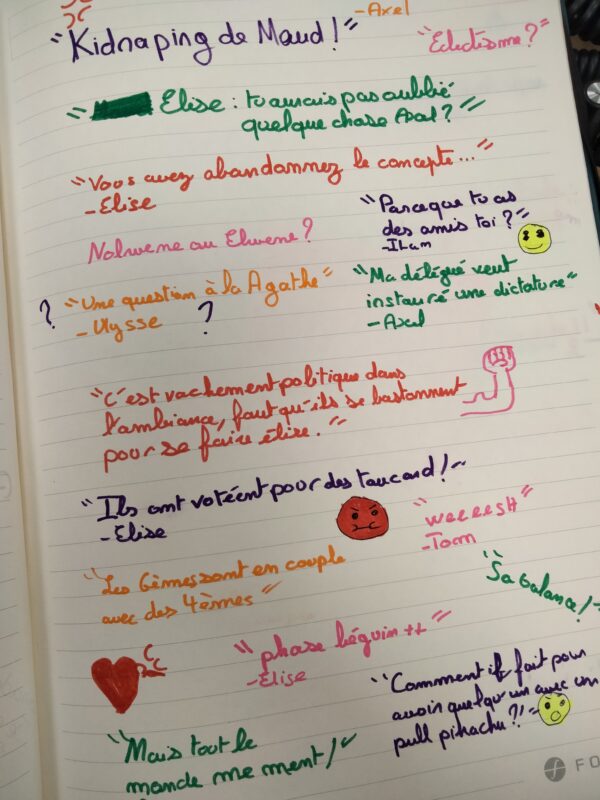 - Axel
"Kidnaping de Maud!"
"Eclectisme?"
" Elise : tu aurais pas oublié
quelque chose Axel? "
"Vous avez abandonnez le concepte..."
- Elise
"Parceque tu as
des amis toi?"
- Ilam
Nolwene ou Elwene?
? "Une question à la Agathe"
- Ulysse ?
"Ma délégué veut
instauré une dictature"
- Axel
"C'est vachement politique dans
l'ambiance, faut qu'ils se bastonnent
pour se faire élire."
"Ils ont votéent pour des toucard!"
- Elise
"weeeesH"
- Tom
"Les 6èmes sont en couple
avec des 4èmes"
"Sa balance!"
"phase béguin ++"
- Elise
"Comment il fait pour
avoir quelqu'un avec un
pull pikachu?!"
"Mais tout le
monde me ment!"
FO